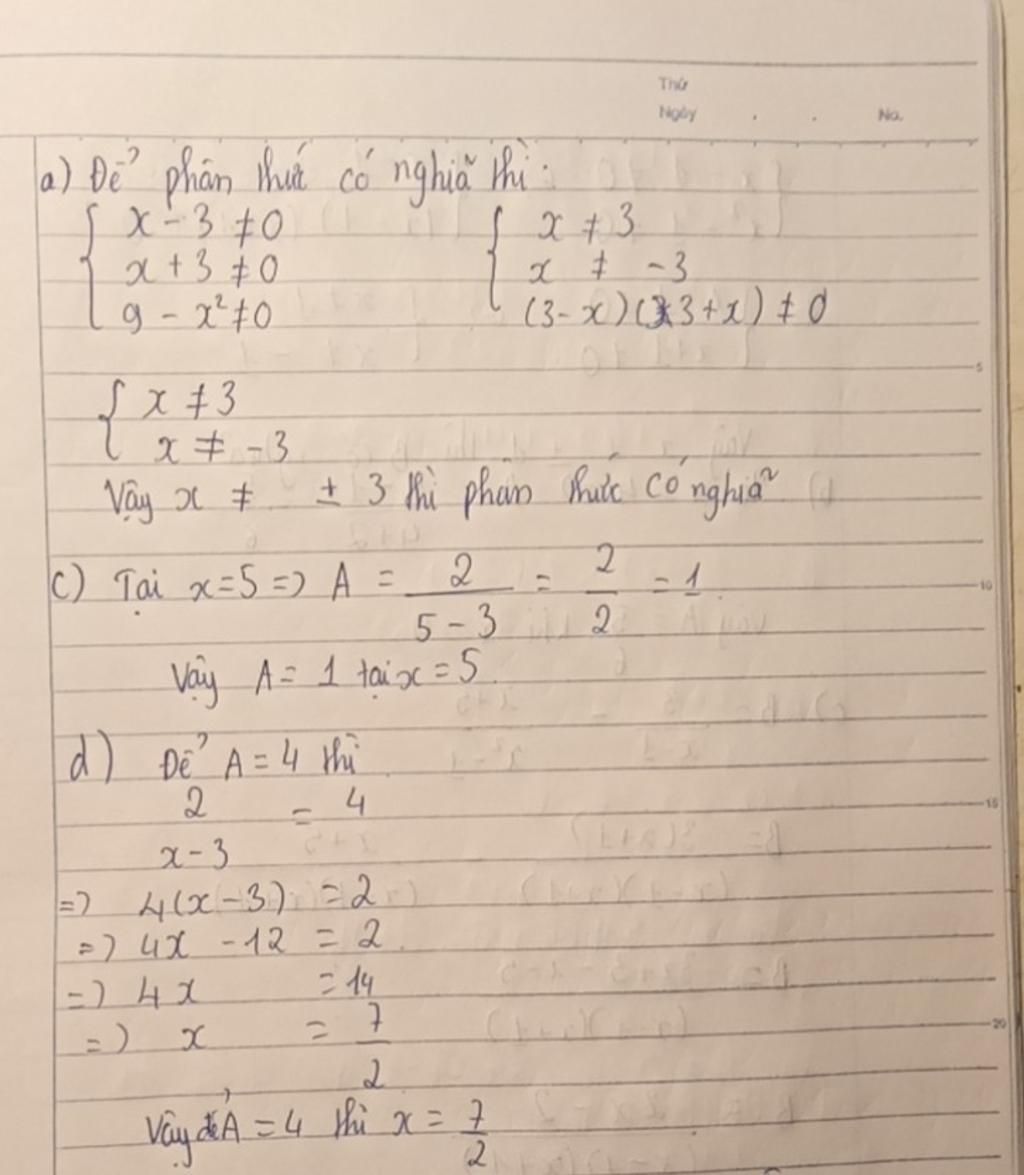 Thứ
Ngày . . No.
a) Để phân thức có nghĩa thì:
{ x - 3 ≠ 0 { x ≠ 3
x + 3 ≠ 0 x ≠ -3
9 - x² ≠ 0 (3 - x)(3 + x) ≠ 0
5
{ x ≠ 3
x ≠ -3
Vậy x ≠ ± 3 thì phân thức có nghĩa
c) Tại x = 5 => A = 2/(5 - 3) = 2/2 = 1
10
Vậy A = 1 tại x = 5.
d) Để A = 4 thì
2/(x - 3) = 4
15
=> 4(x - 3) = 2
=> 4x - 12 = 2
=> 4x = 14
=> x = 7/2
20
Vậy để A = 4 thì x = 7/2